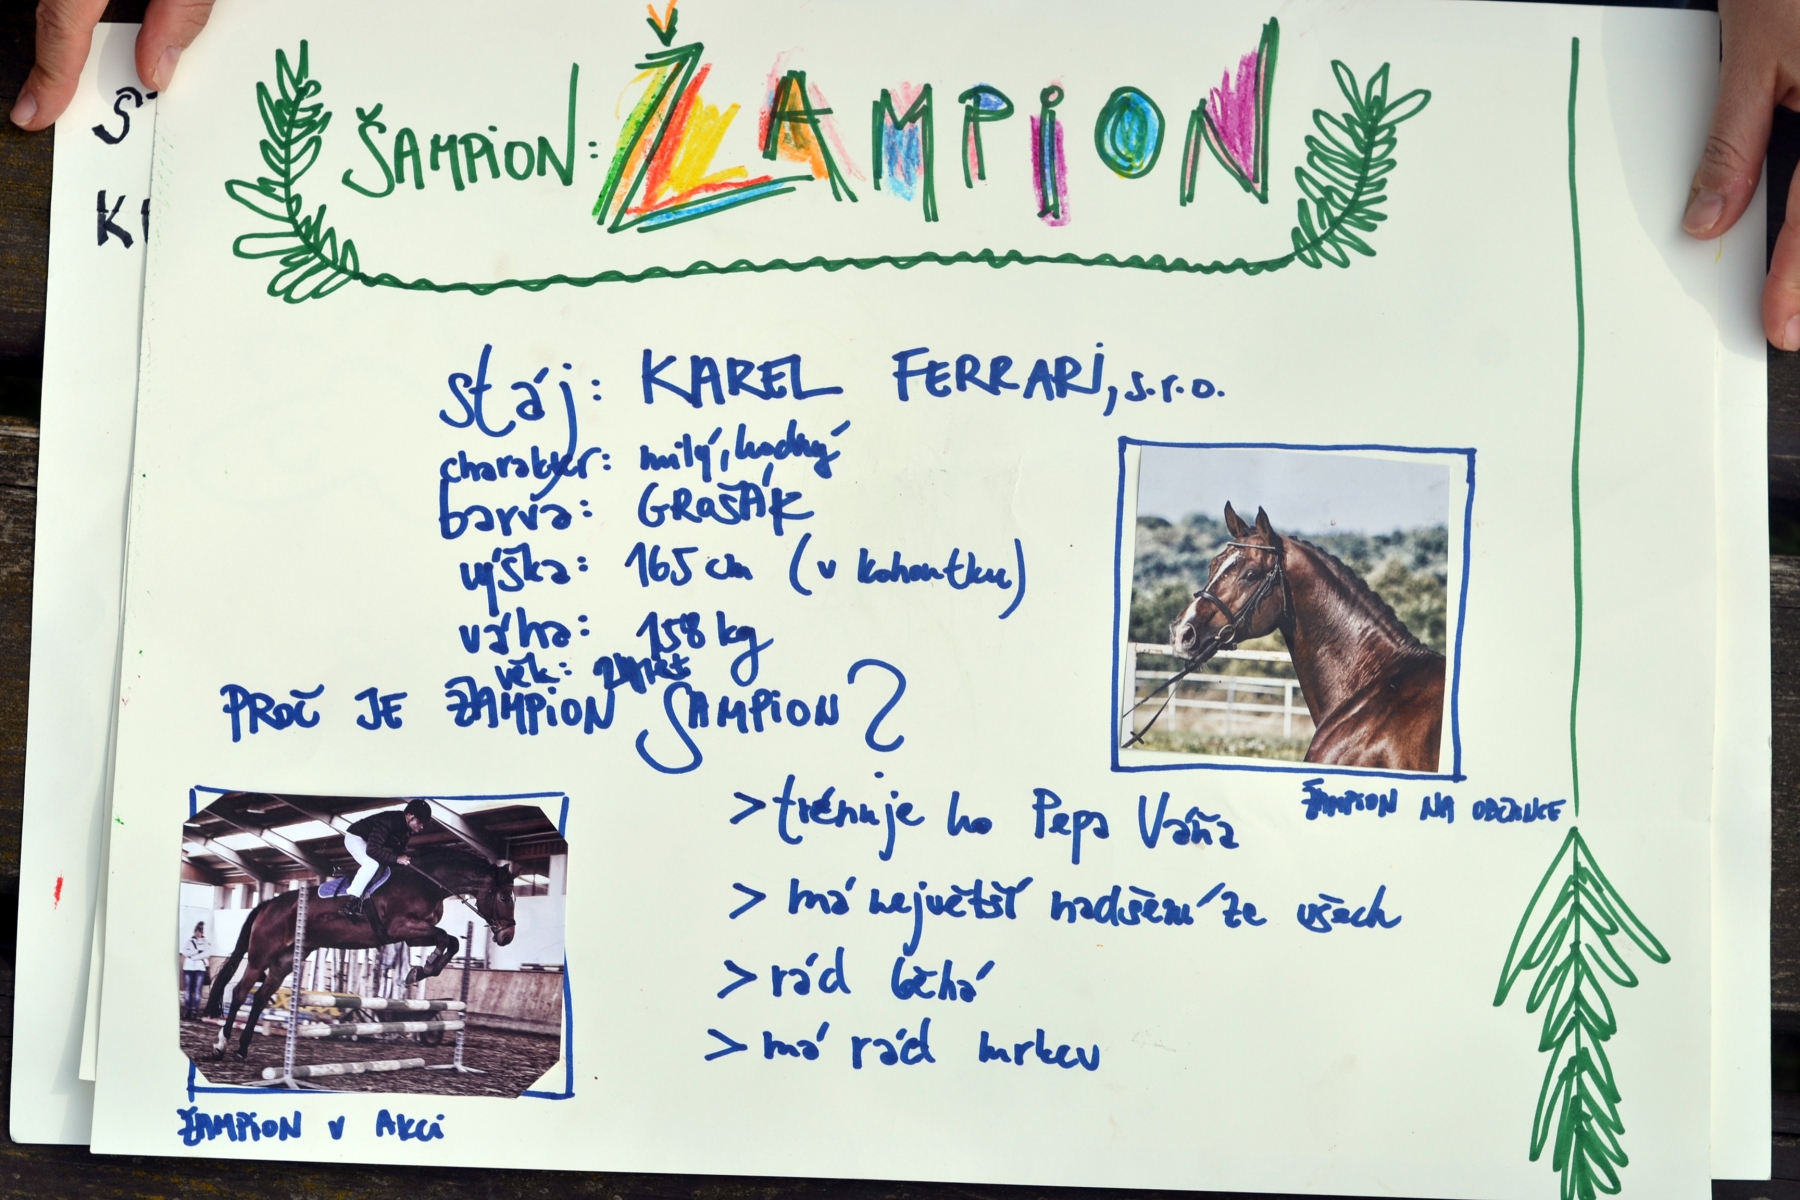 Š
K
ŠAMPION: ŽAMPION
stáj: KAREL FERRARI, s.r.o.
charakter: milý, hodný
barva: GROŠÁK
výška: 165 cm (v kohoutku)
váha: 158 kg
věk: let
PROČ JE ŽAMPION ŠAMPION?
> trénuje ho Pepa Váňa
ŽAMPION NA
> má největší nadšení ze všech
> rád běhá
> má rád mrkev
ŽAMPION V AKCI